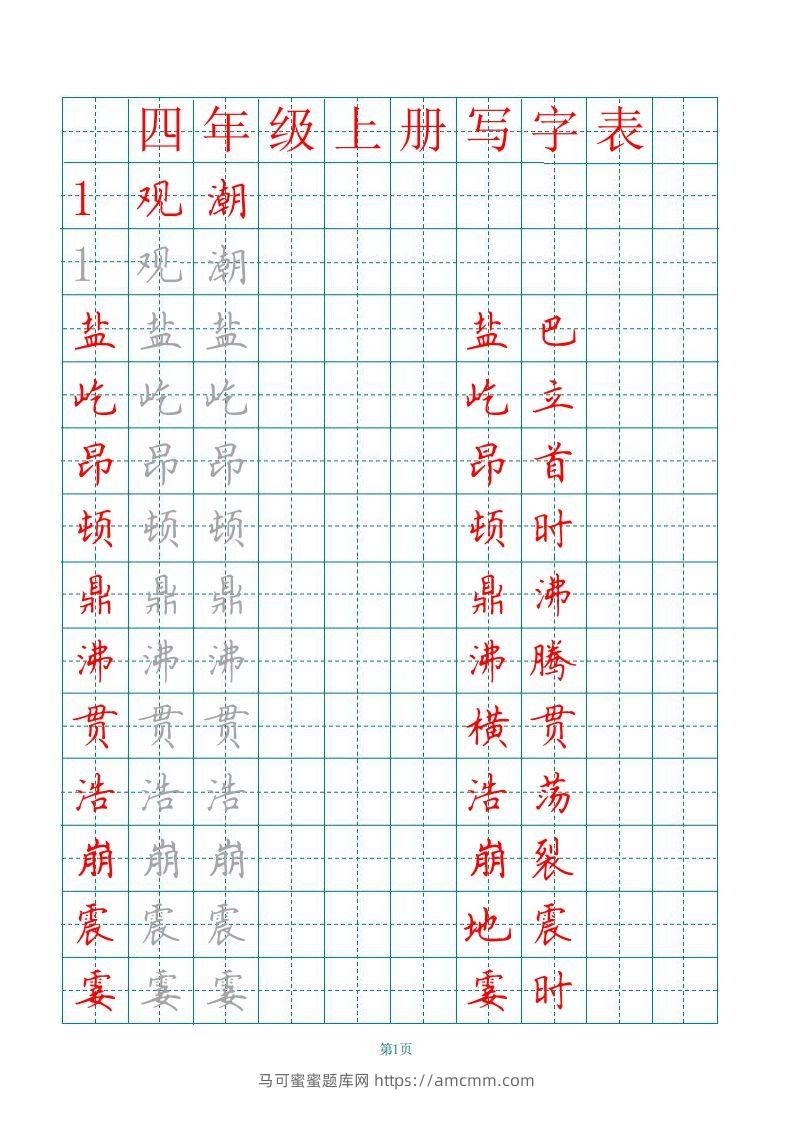 四年级上册写字表
1 观潮
1 观潮
盐 盐 盐 盐巴
屹 屹 屹 屹立
昂 昂 昂 昂首
顿 顿 顿 顿时
鼎 鼎 鼎 鼎沸
沸 沸 沸 沸腾
贯 贯 贯 横贯
浩 浩 浩 浩荡
崩 崩 崩 崩裂
震 震 震 地震
霎 霎 霎 霎时
第1页
马可蜜蜜题库网 https://amcmm.com